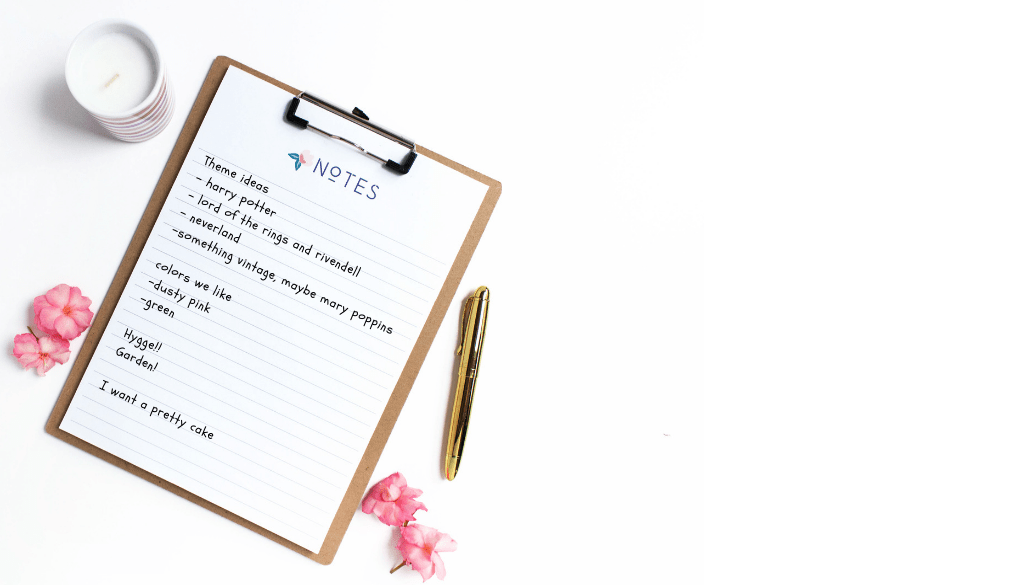 NOTES
Theme ideas
- harry potter
- lord of the rings and rivendell
- neverland
-something vintage, maybe mary poppins
colors we like
-dusty pink
-green
Hygge!!
Garden!
I want a pretty cake